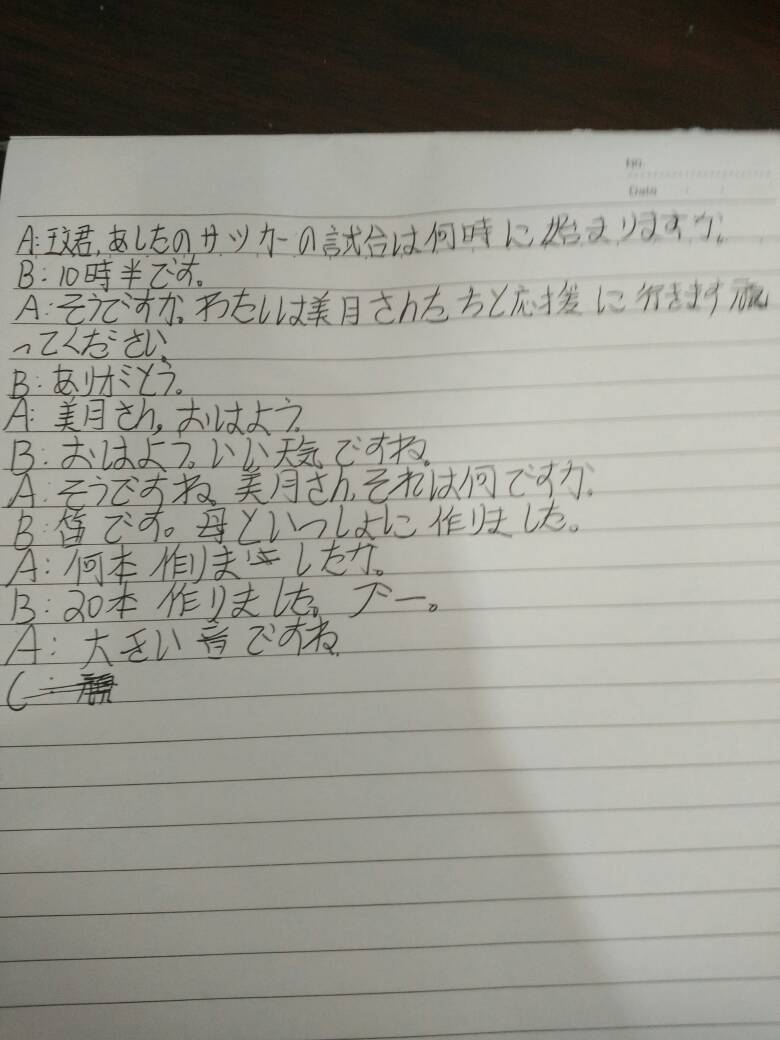 No.
Date
A:玟君,あしたのサッカーの試合は何時に始まりますか。
B:10時半です。
A:そうですか。わたしは美月さんたちと応援に行きます
ってください。
B:ありがとう。
A:美月さん,おはよう。
B:おはよう。いい天気ですね。
A:そうですね。美月さん,それは何ですか。
B:笛です。母といっしょに作りました。
A:何本作りましたか。
B:20本作りました。ブー。
A:大きい音ですね。